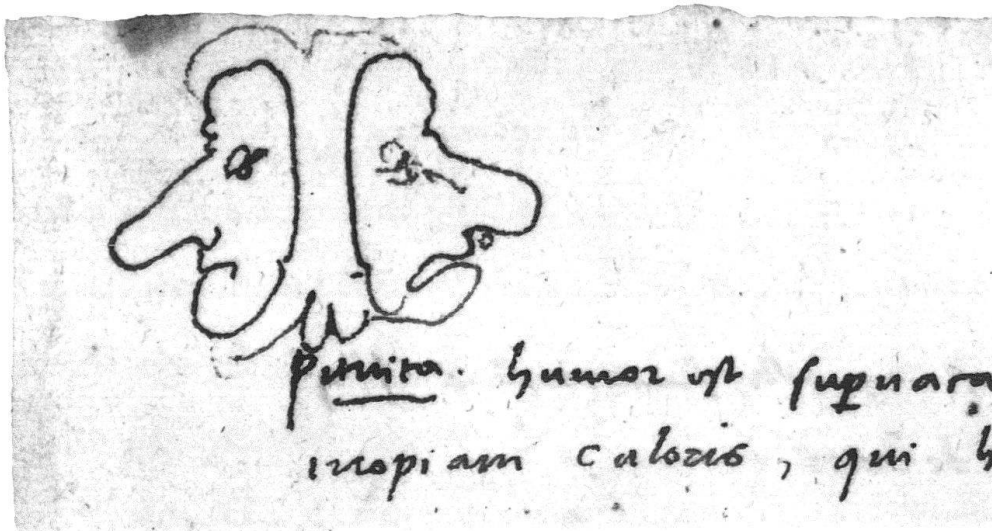 Pituita. humor est
inopiam caloris, qui h